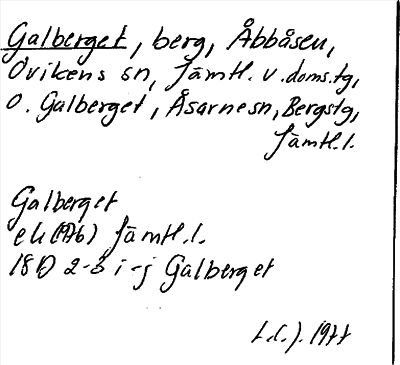 Galberget, berg, Åbbåsen,
Ovikens sn, Jämtl. v. doms.tg,
o. Galberget, Åsarne sn, Bergstg,
Jämtl.l.
Galberget
ek (1976) Jämtl.l.
18D 2-3 i-j Galberget
1977